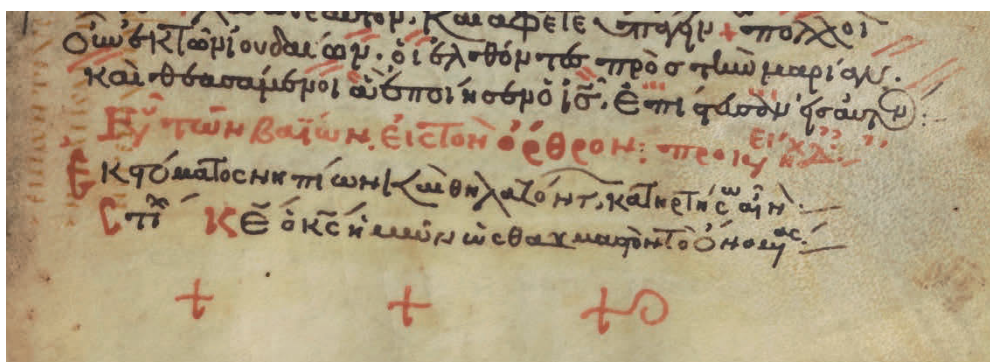 καὶ ἄφετε ὑπάγειν + πολλοὶ
οὖν ἐκ τῶν ἰουδαίων· οἱ ἐλθόντες πρὸς τὴν μαριὰμ·
καὶ θεασάμενοι ἃ ἐποίησεν ὁ ἰς̅. ἐπίστευσαν εἰς αὐτόν:
τῶν βαΐων. εἰς τὸν ὄρθρον:
Ἐκ στόματος νηπίων καὶ θηλαζόντ. κατηρτίσω αἶν
Στιχ Κε ὁ κς ἡμῶν ὡς θαυμαστὸν τὸ ὄνομ
+ + +